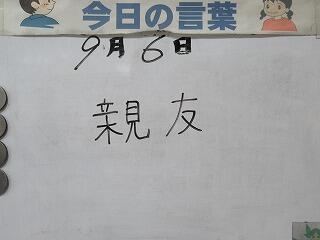 今日の言葉
9月6日
親友